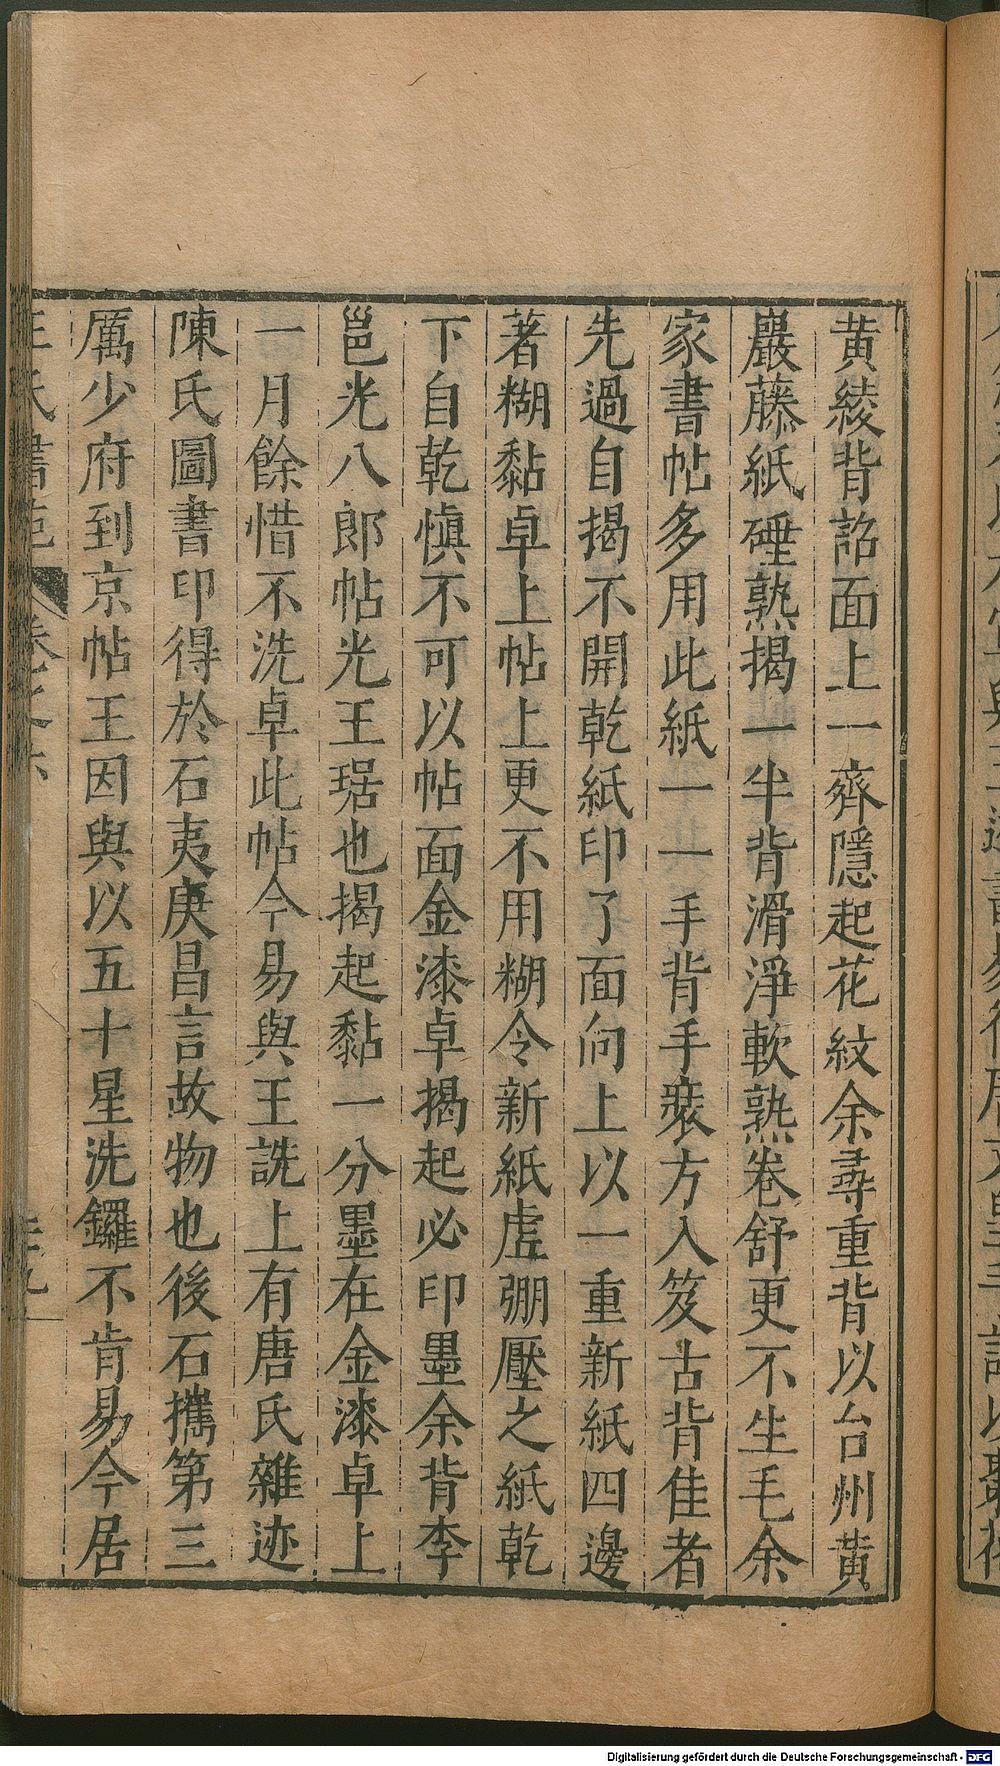 黃綾背詔面上一齊隱起花紋余尋重背以台州黃
巖藤紙硾熟揭一半背滑淨軟熟卷舒更不生毛余
家書帖多用此紙一一手背手裝方入笈古背佳者
先過自揭不開乾紙印了面向上以一重新紙四邊
著糊黏卓上帖上更不用糊令新紙虛弸壓之紙乾
下自乾慎不可以帖面金漆卓揭起必印墨余背李
邕光八郎帖光王琚也揭起黏一分墨在金漆卓上
一月餘惜不洗卓此帖今易與王詵上有唐氏雜迹
陳氏圖書印得於石夷庚昌言故物也後石攜第三
厲少府到京帖王因與以五十星洗鑼不肯易今居
王氏書苑 卷之六
Digitalisierung gefördert durch die Deutsche Forschungsgemeinschaft - DFG